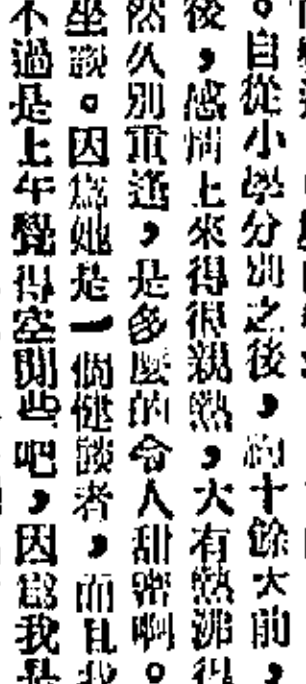 。自從小學分別之後，約十餘天前，
後，感情上來得很親熱，大有熱沸得
然久別重逢，是多麼的令人甜密啊。
坐談。因爲她是一個健談者，而且我
不過是上午覺得空閒些吧，因爲我是